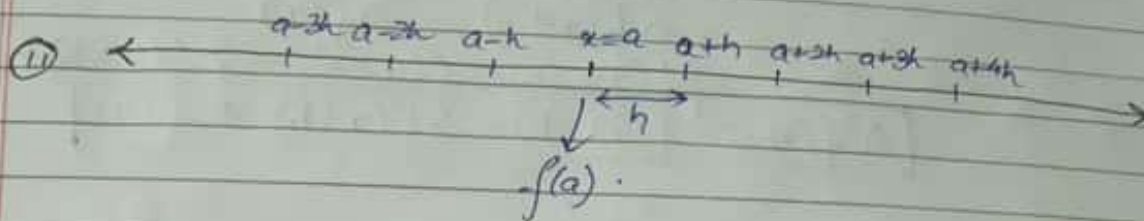 (11) a-3h a-2h a-h x=a a+h a+2h a+3h a+4h
h
f(a).